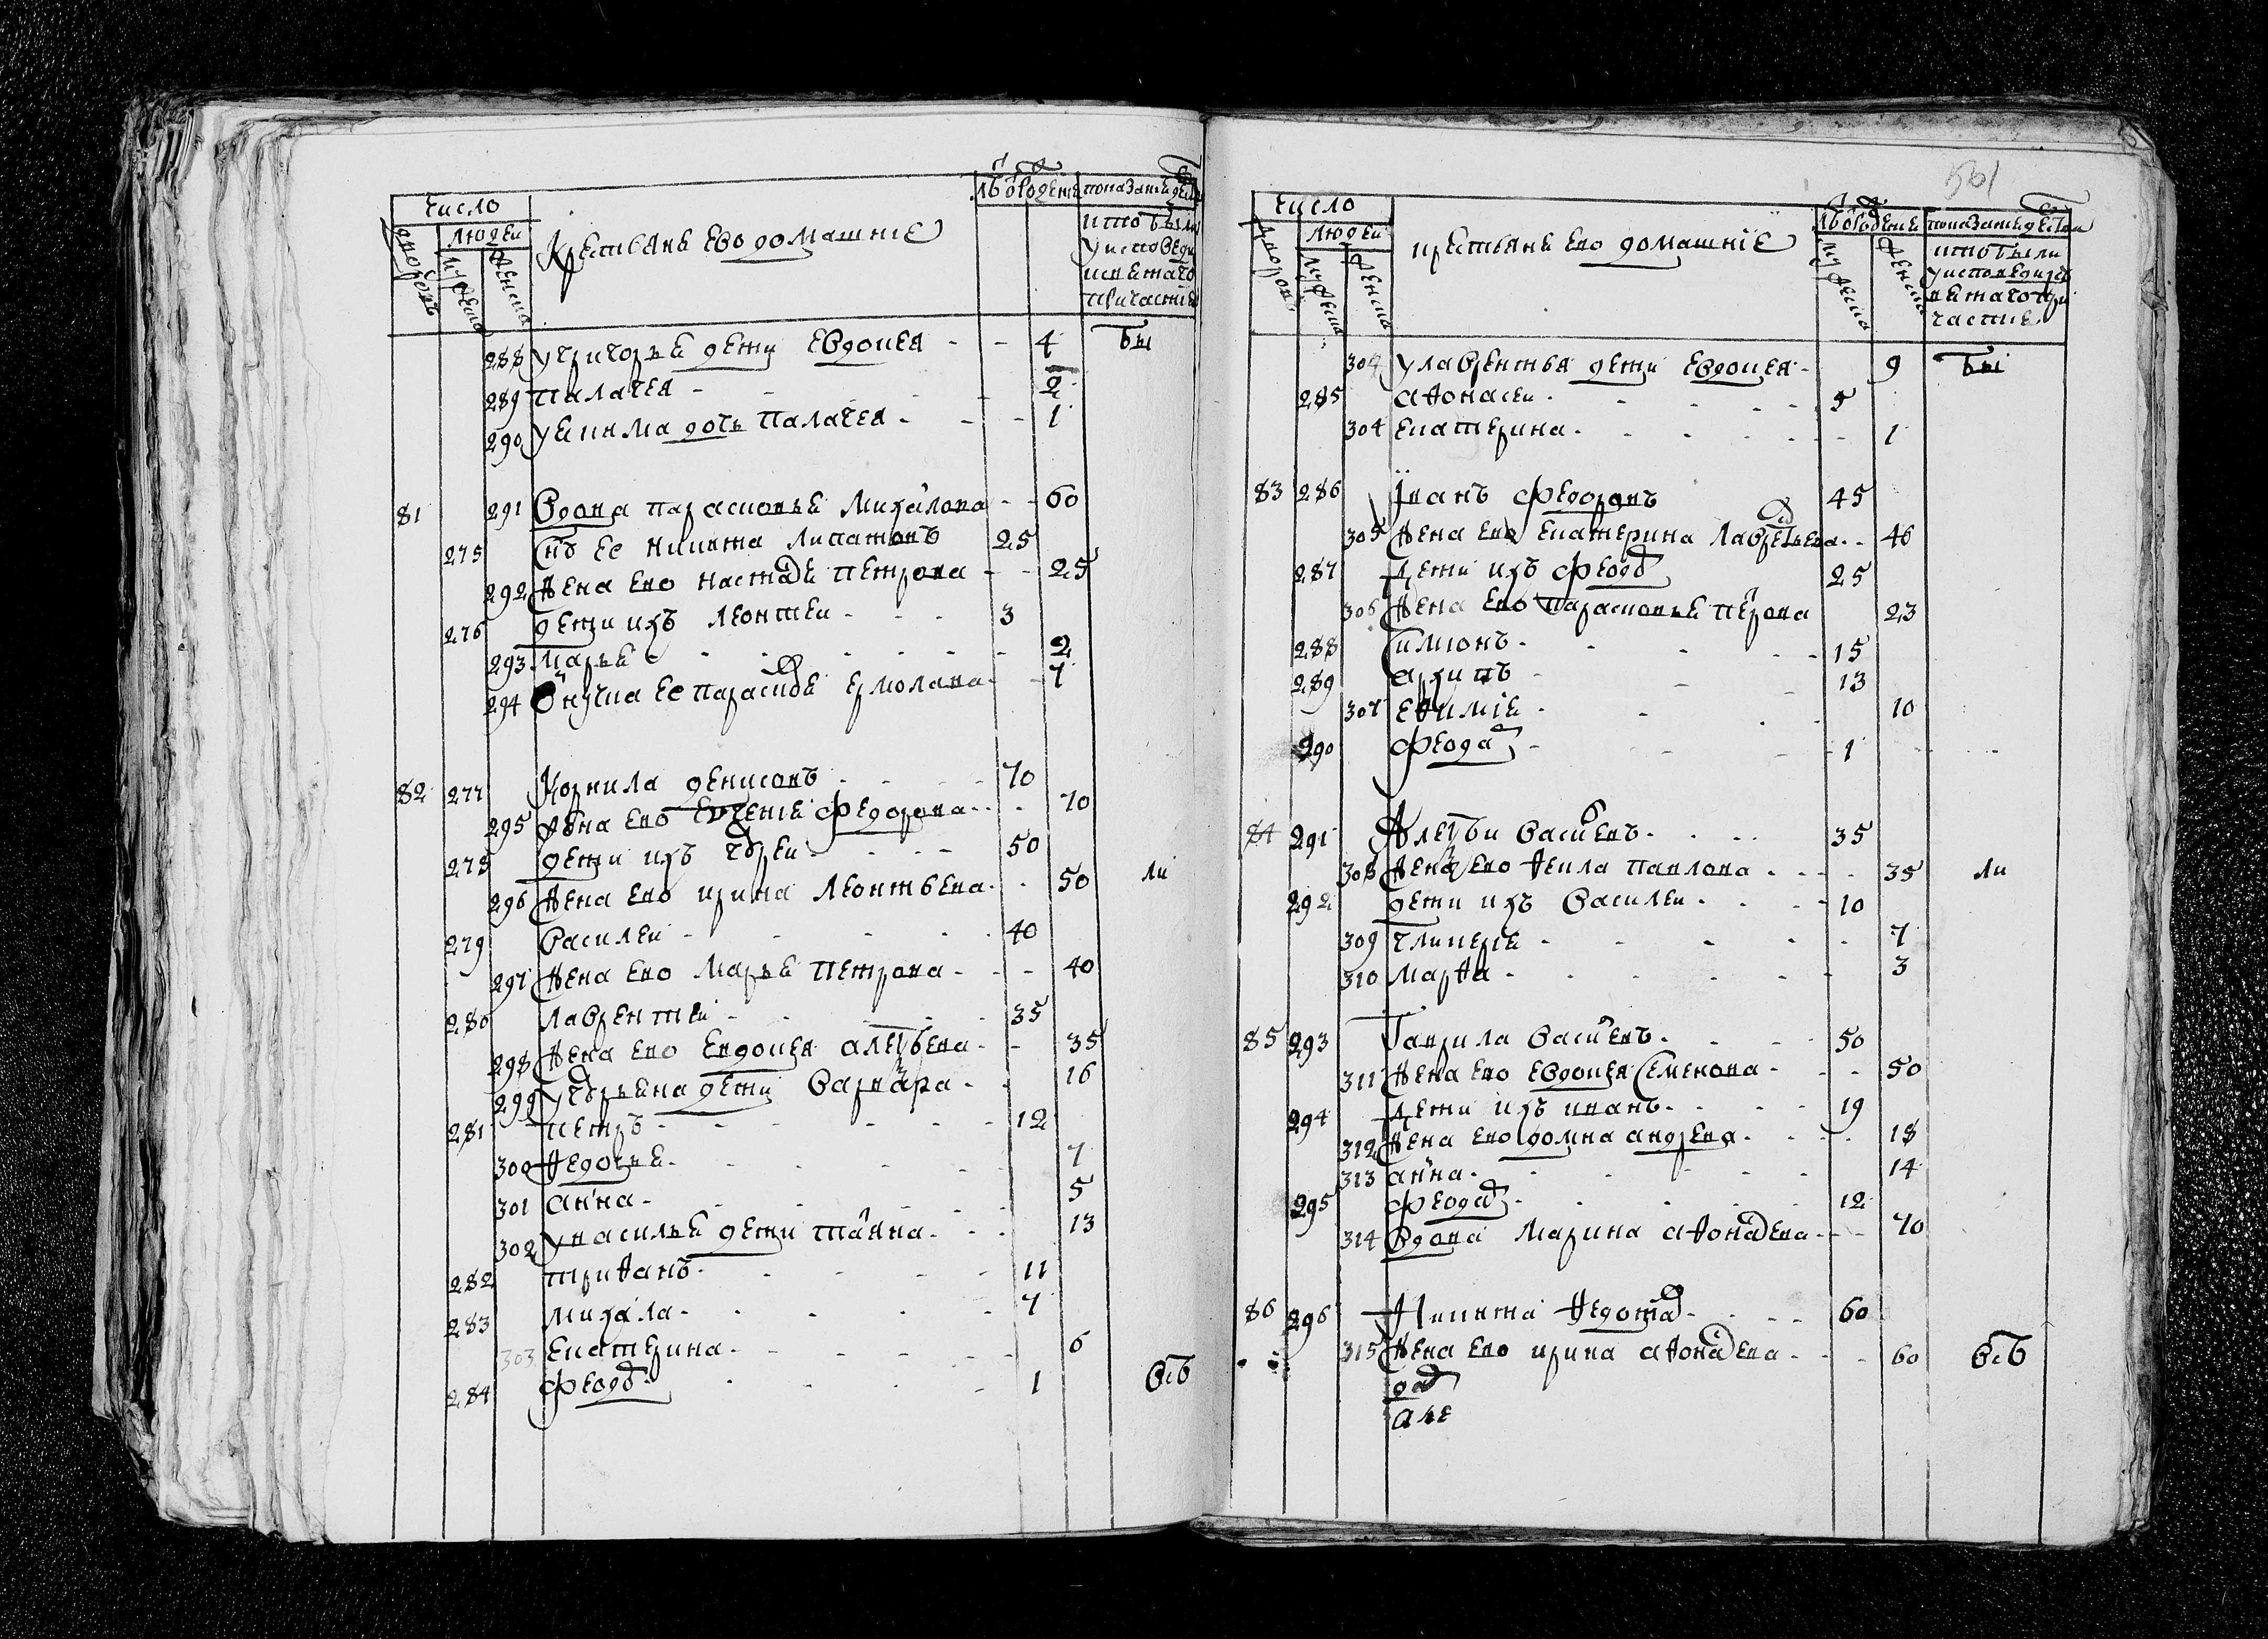 число
людеи
дворовъ
мужеска
женска
крестьяне ево домашние
лѣ о рожд.
показание действъ
кто были
у исповеди
и святаго
причастия
288 у григорья дети евдокея - - 4 бы
289 палагея - - 2
290 у екима дочь палагея - - 1
81 291 вдова парасковья михайлова - - 60
275 снъ ее никита липатовъ 25
292 жена ево настасья петрова - - 25
276 дети ихъ леонтеи - - 3
293 марья - - 2
294 внучка ее парасковья ермолаева - - 7
82 277 корнила денисовъ - - 70
295 жена ево евгения федорова - - 70
278 дети ихъ григореи - - 50
296 жена ево ирина леонтьева - 50 ли
279 василеи - - 40
297 жена ево марья петрова - - 40
280 лаврентеи - - 35
298 жена ево евдокея алексѣева - - 35
299 у григорьева дети варвара - - 16
281 петръ - - 12
300 федосья - 7
301 анна - 5
302 у василья дети татьяна - - 13
282 трифанъ - - 11
283 михаила - - 7
303 екатерина - - 6
284 феодоръ - - 1 всѣ
561
число
людеи
дворовъ
мужеска
женска
крестьяне ево домашние
мужеска
женска
показание действъ
кто были
у исповеди и св
ятаго при
частия
304 у лаврентья дети евдокея - 9 бы
285 афонасеи - - 5
304 екатерина - - 1
83 286 иванъ федоровъ 45
305 жена ево екатерина лаврентьева - - 46
287 дети ихъ феодоръ 25
306 жена ево парасковья петрова 23
288 симионъ - - 15
289 архипъ - - 13
307 ефимия - - 10
290 феодоръ - - 1
84 291 алексѣи васильевъ - - 35
308 жена ево фекла павлова - - 35 ли
292 дети ихъ василеи - - 10
309 гликерия - - 7
310 марфа - - 3
85 293 гаврила васильевъ - - 50
311 жена ево евдокея семенова - - 50
294 дети ихъ иванъ - - 19
312 жена ево домна андреева - - 18
313 анна - - 14
295 феодоръ - - 12
314 вдова марина афонасева - - 70
86 296 никита федотовъ - - 60
315 жена ево ирина афонасева - - 60 всѣ